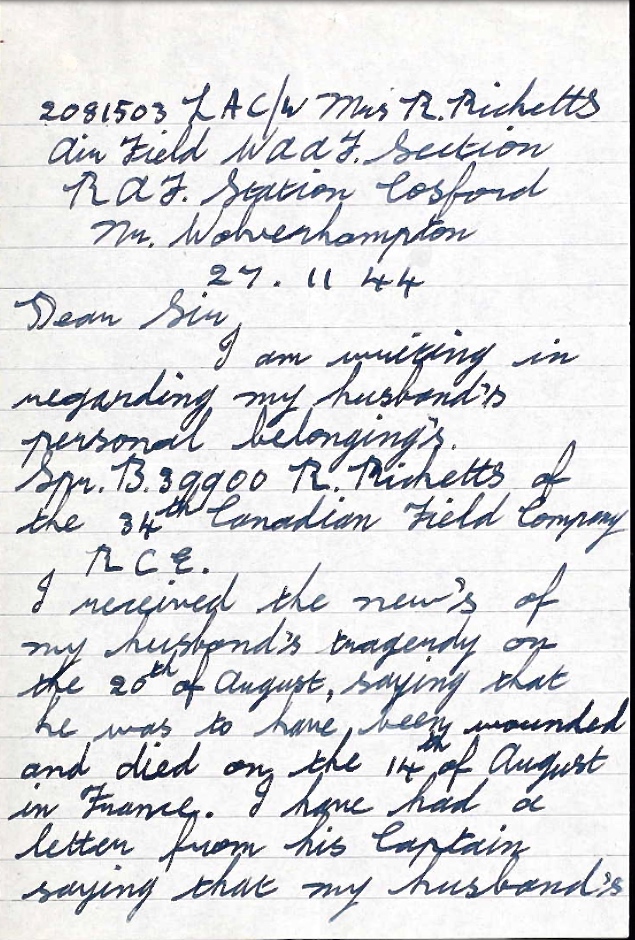 2081503 LAC/W Mrs R. Ricketts
Air Field W.A.A.F. Section
R.A.F. Station Cosford
Nr. Wolverhampton
27.11 44
Dear Sir,
I am writing in
regarding my husband's
personal belonging's.
Spr. B.39900 R. Ricketts of
the 34th Canadian Field Company
R C E.
I received the new's of
my husband's tragerdy on
the 20th of August, saying that
he was to have been wounded
and died on the 14th of August
in France. I have had a
letter from his Captain
saying that my husband's